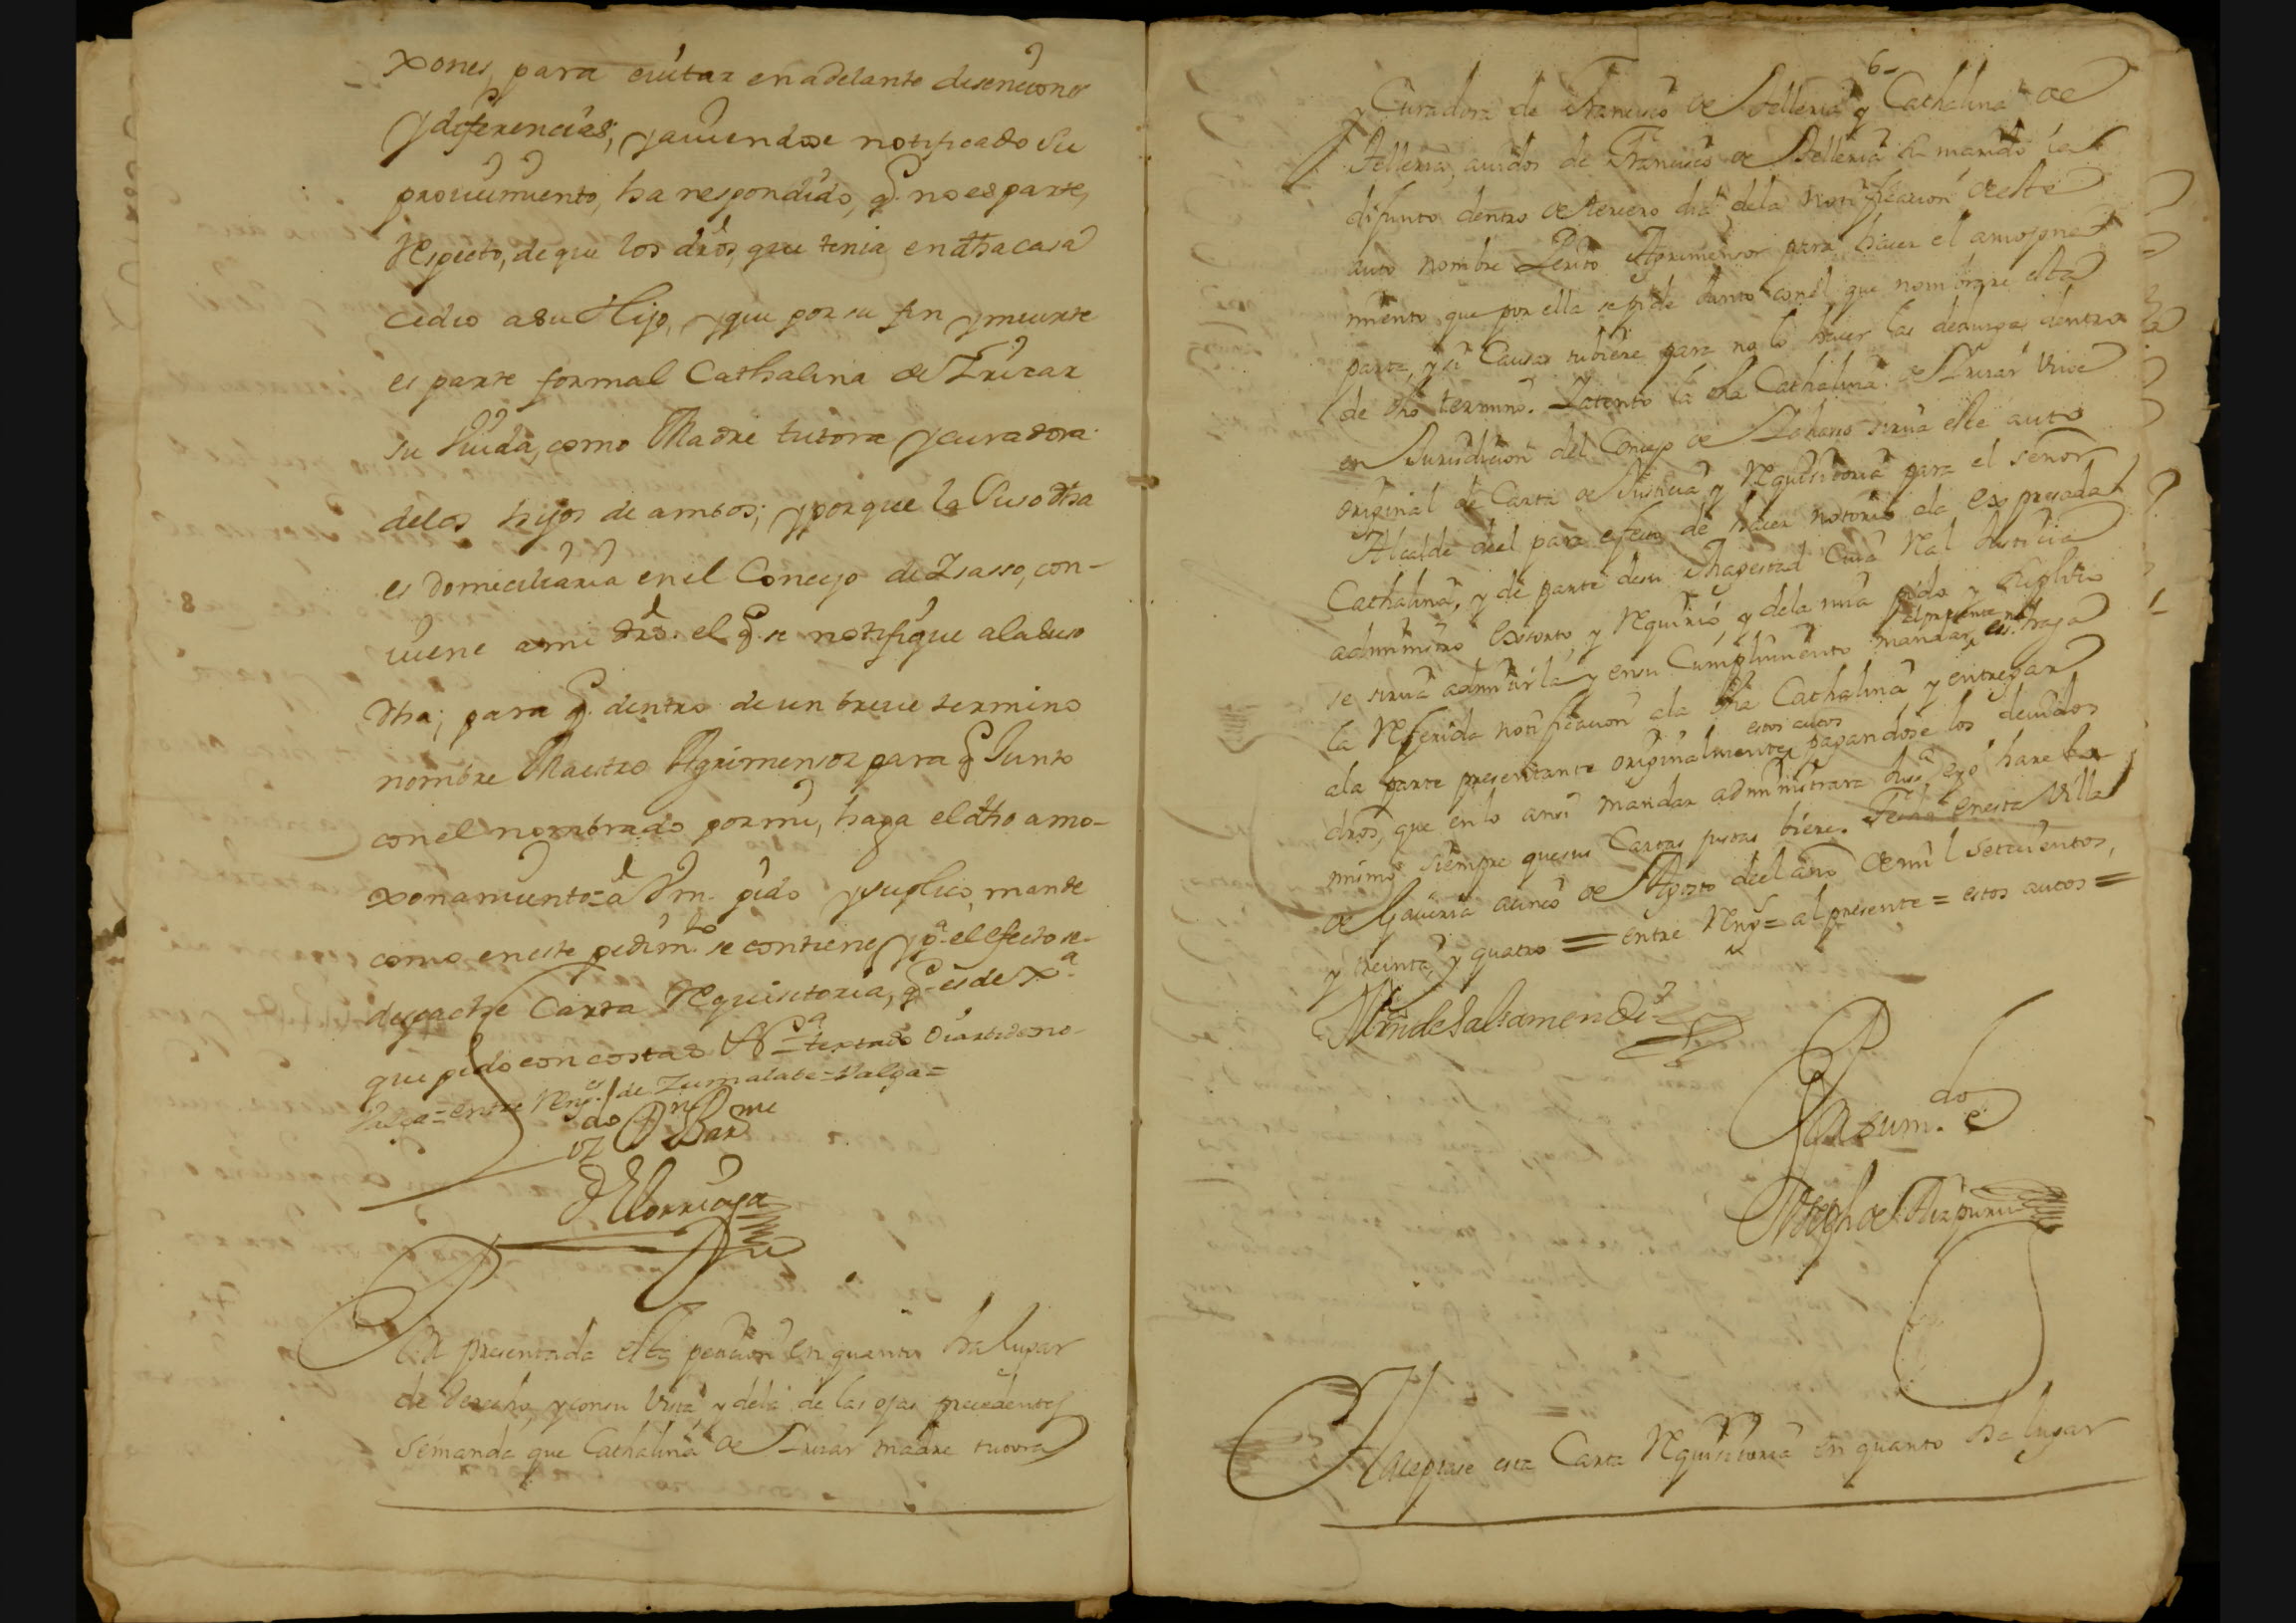 xones, para euitar en adelante disenciones
y diferencias; y auiendose notificado su
proueimiento, ha respondido, q.e no es parte,
respecto, de que los dros, que tenia en dha casa
cedio a su Hijo, y que por su fin y muerte
es parte formal Cathalina de Irizar
su Viuda, como Madre tutora y curadora
de los hijos de ambos; y porque la suso dha
es domiciliaria en el Concejo de Izasso, con-
uiene a mi dro. el q.e se notifique a la suso
dha; para q.e dentro de un breue termino
nombre Maestro Agrimensor para q.e Junto
con el nombrado por mi, haga el dho amo-
xonamiento = a Vm. pido y suplico, mande
como en este pedim.to se contiene, y p.a el efecto se
despache Carta requisitoria, q.e es de Jx.a
que pido con costas &.a = testado
Valga = entre reng.es de Zumalabe = Valga =
do D.n Bar.me
de Elorriaga
Por presentada esta peticion en quanto ha lugar
de derecho, y con su vista y de la de las ojas precedentes
se manda que Cathalina de Irizar madre tutora
6
y Curadora de Francisco de Stelleria y Cathalina de
Stelleria, auidos de Francisco de Stelleria su marido ia
difunto dentro de tercero dia de la notificacion de este
auto nombre Perito Agrimensor para hacer el amojona
miento que por ella se pide Junto con el que nombrare esta
parte, y si Causas tubiere para no lo hacer las deduzga dentro
de dho termino. Y atento la dha Cathalina de Irizar Viue
en Jurisdicion del Concejo de Izasso sirua este auto
original de Carta de Justicia y requisitoria para el señor
Alcalde del para efecto de hacer notorio a la expresada
Cathalina, y de parte de su Magestad Cuia real Justicia
administro exsorto, y requiero, y de la mia pido y suplico
se sirua admitirla y en su Cumplimiento mandar el presente es.no haga
la referida notificacion a la dha Cathalina y entregar
a la parte presentante originalmente estos autos pagandose los deuidos
dros, que en lo ansi mandar administrara Just.a e yo hare lo
mismo siempre que sus Cartas justas biere. Fecho en esta Villa
de Gauiria a cinco de Agosto del año de mil setecientos,
y treinta y quatro = entre reng.s = al presente = estos autos =
Mrn de Salsamendi
Por su m.do
Joseph de Aizpuru
Aceptase esta Carta requisitoria en quanto ha lugar